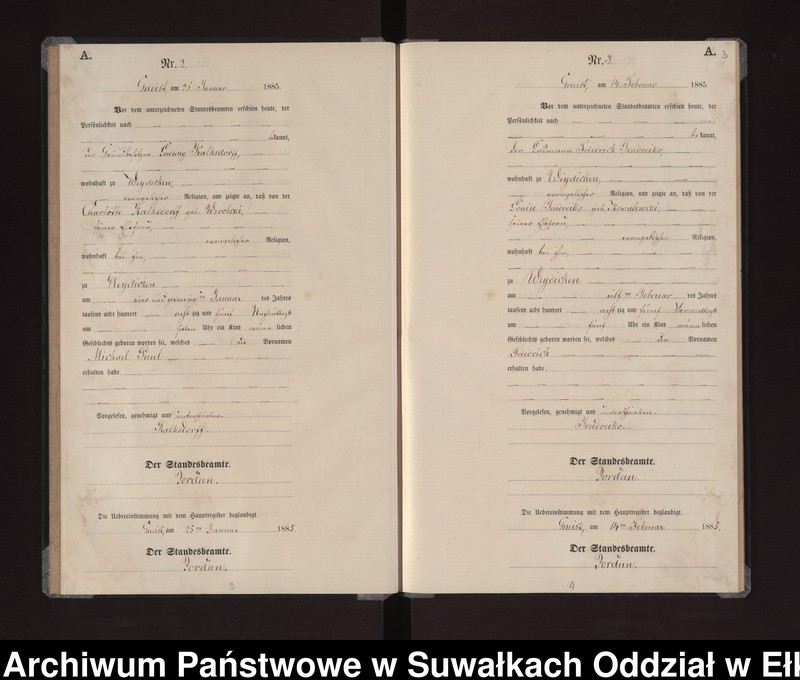 A.
Nr. 2.
Gneist, am 25 Januar 1885.
Vor dem unterzeichneten Standesbeamten erschien heute, der
Persönlichkeit nach
bekannt,
der Grundbesitzer Ludwig Kalksdorff,
wohnhaft zu Weydicken,
evangelischer Religion, und zeigte an, daß von der
Charlotte Kalksdorf geb.
seiner Ehefrau,
evangelischer Religion,
wohnhaft bei ihm,
zu Weydicken
am vier und zwanzigsten Januar des Jahres
tausend acht hundert achtzig und fünf Nachmittags
um sieben Uhr ein Kind männlichen
Geschlechts geboren worden sei, welches die Vornamen
Michael Paul
erhalten habe.
Vorgelesen, genehmigt und unterschrieben.
Kalksdorff.
Der Standesbeamte.
Jordan.
Die Uebereinstimmung mit dem Hauptregister beglaubigt.
Gneist, am 25ten Januar 1885.
Der Standesbeamte.
Jordan.
3
A.
3
Nr. 3.
Gneist, am 14 Februar 1885.
Vor dem unterzeichneten Standesbeamten erschien heute, der
Persönlichkeit nach
bekannt,
der Losmann Friedrich Jendreiko,
wohnhaft zu Weydicken,
evangelischer Religion, und zeigte an, daß von der
Louise Jendreiko geb. Kowalewski,
seiner Ehefrau,
evangelischer Religion,
wohnhaft bei ihm,
zu Weydicken
am elften Februar des Jahres
tausend acht hundert achtzig und fünf Vormittags
um fünf Uhr ein Kind männlichen
Geschlechts geboren worden sei, welches den Vornamen
Friedrich
erhalten habe.
Vorgelesen, genehmigt und unterschrieben.
Jendreiko.
Der Standesbeamte.
Jordan.
Die Uebereinstimmung mit dem Hauptregister beglaubigt.
Gneist, am 14ten Februar 1885.
Der Standesbeamte.
Jordan.
4
Archiwum Państwowe w Suwałkach Oddział w Ełk